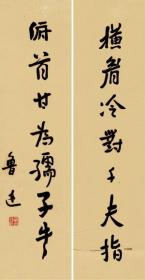 横眉冷對千夫指
俯首甘為孺子牛
魯迅